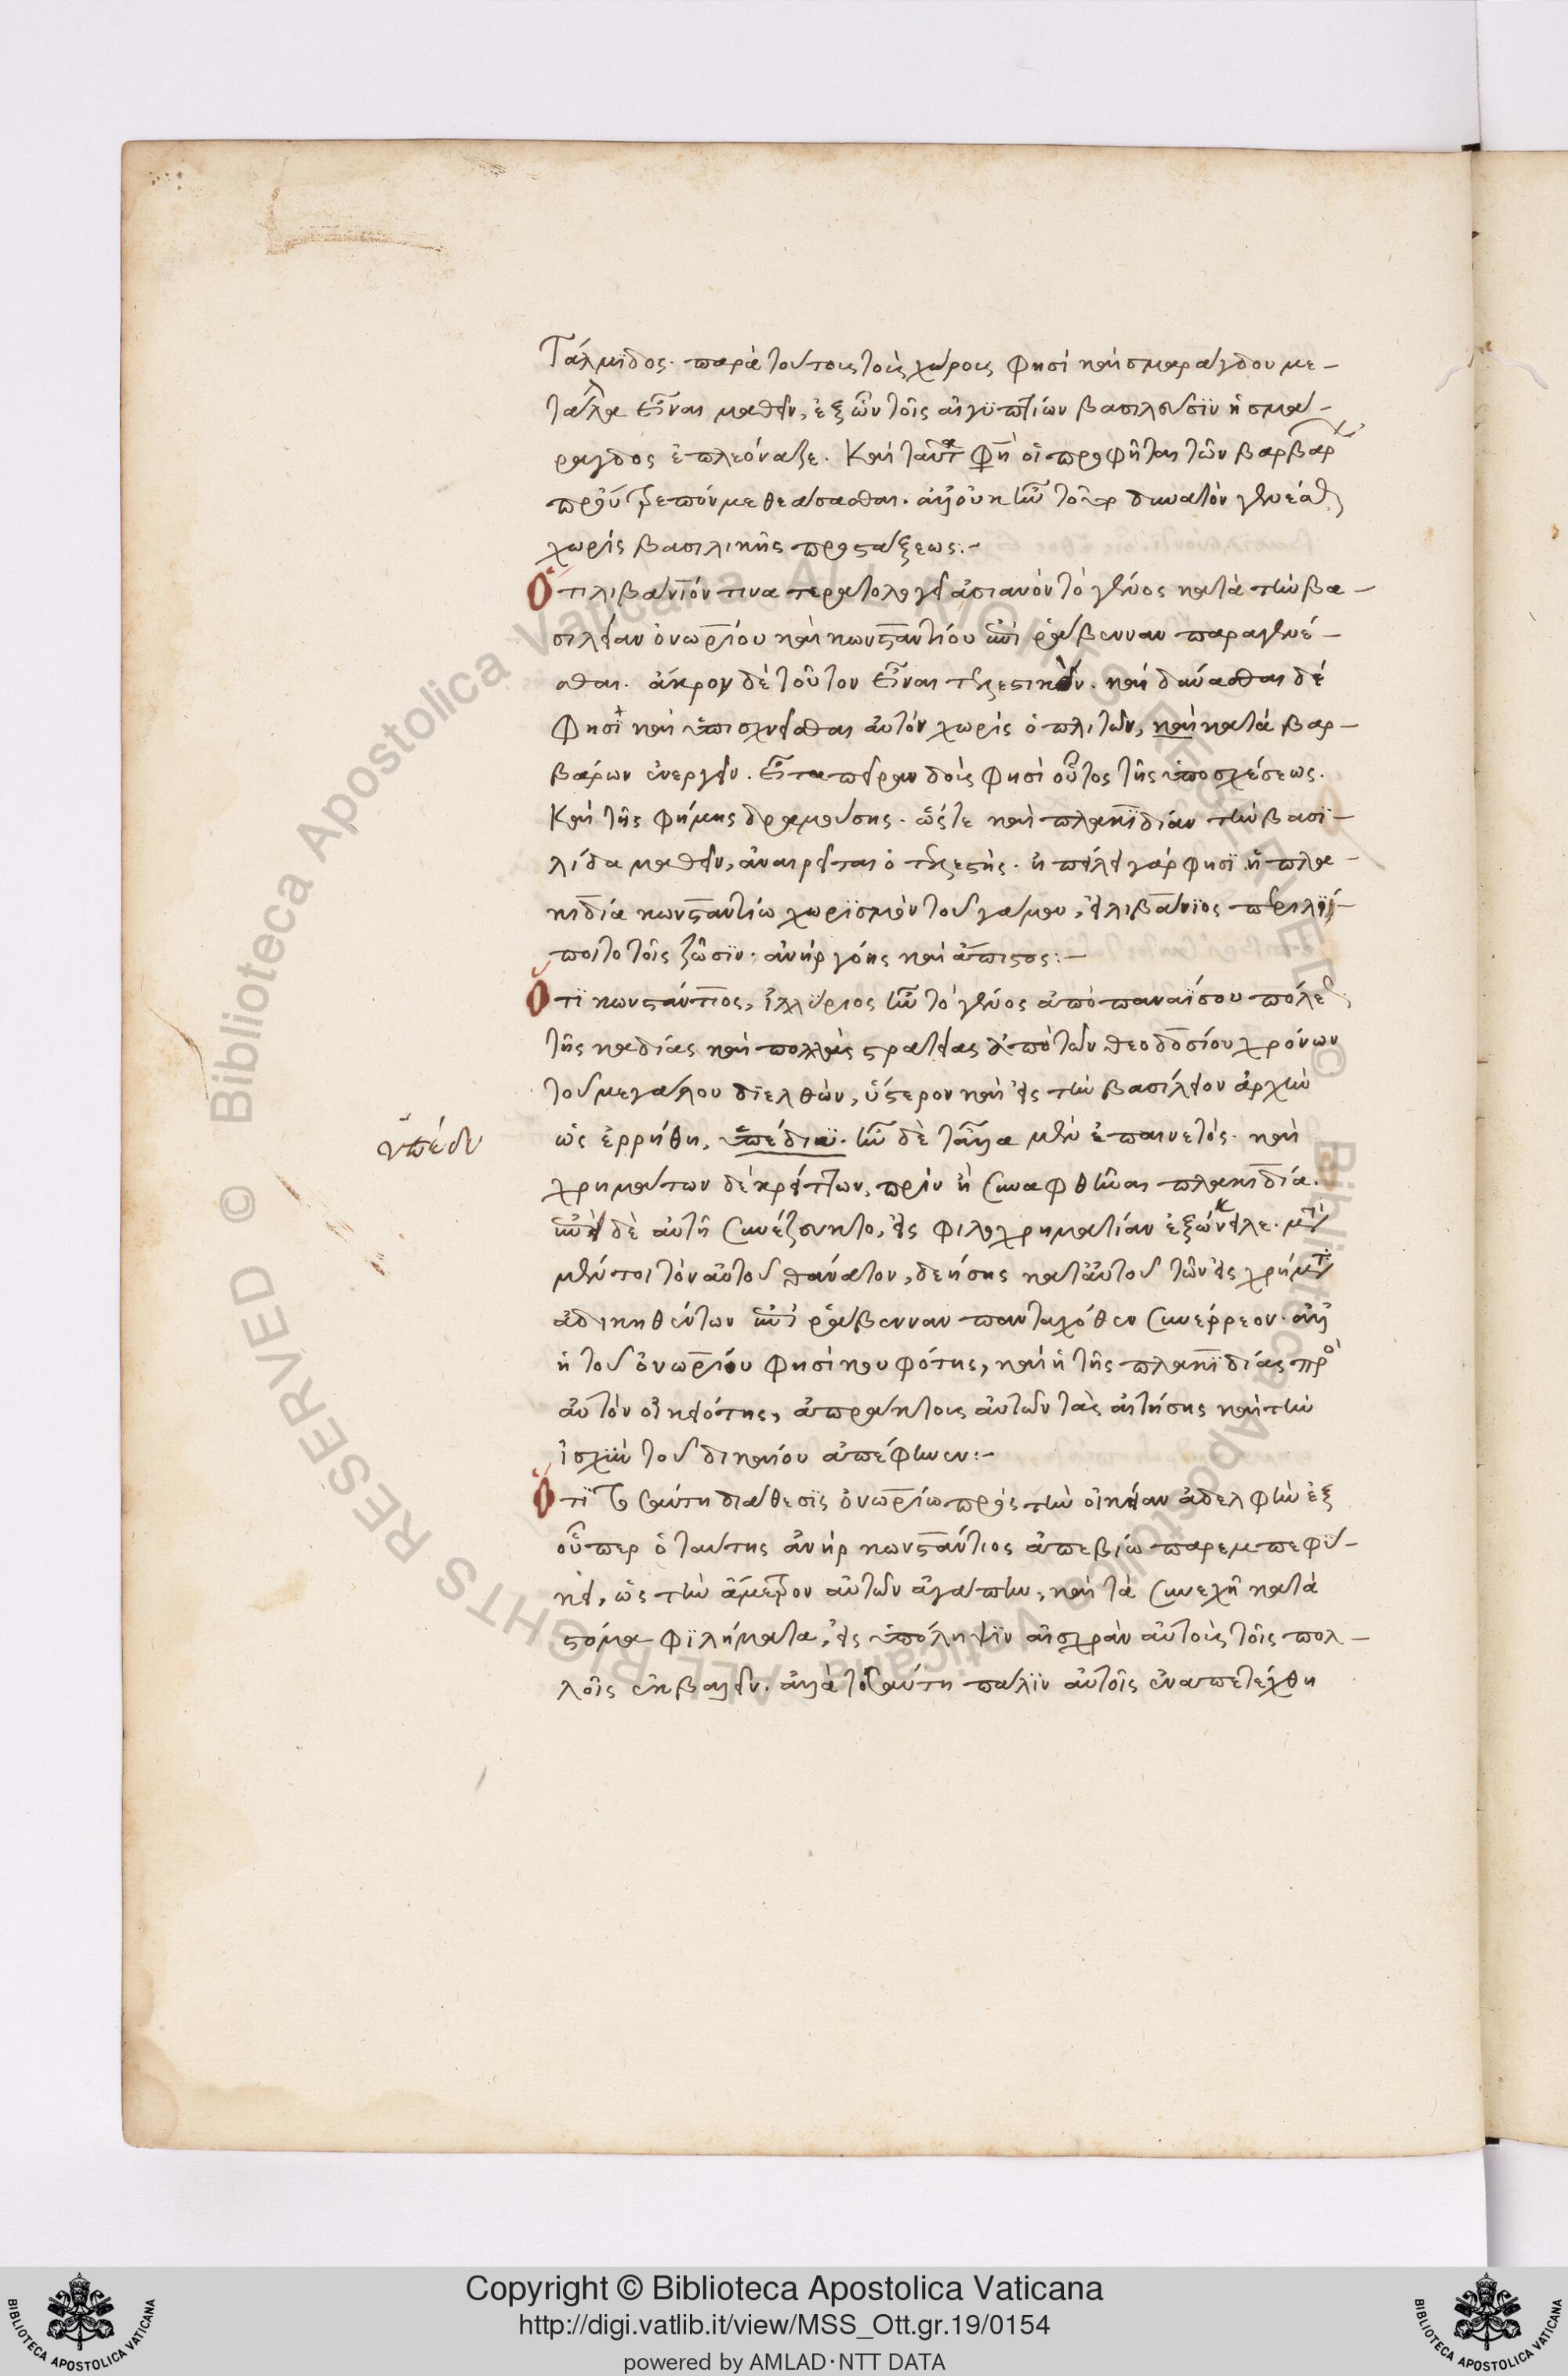 Τάλμιδος. παρὰ τούτοις τοῖς χώροις φησὶ καὶ σμαράγδου με-
ταλλα εἶναι μαθεῖν, ἐξ ὧν τοῖς αἰγυπτίων βασιλεῦσϊν ἡ σμα-
ραγδος ἐπλεόναζε. Καὶ ταῦτα φη οἱ προφῆται τῶν βαρβαρ
προύτρεπόν με θεάσασθαι. ἀλλ' οὐκ ἦν τοῦτο δυνατὸν γενέσθ
χωρὶς βασιλικῆς προστάξεως:-
Ὅτι λιβάνιόν τινα τερατολογεῖ ἀσιανὸν τὸ γένος κατὰ τὴν βα-
σιλείαν ὁνωρίου καὶ κωνσταντίου ἐπὶ ῥάβενναν παραγενέ-
σθαι. ἄκρον δὲ τοῦτον εἶναι τελεστικὸν. καὶ δύνασθαι δέ
φησι καὶ ὑπισχνεῖσθαι αὐτόν χωρὶς ὁπλιτῶν, καὶ κατὰ βαρ-
βάρων ἐνεργεῖν. εἶτα πεῖραν δοὺς φησὶ οὗτος τῆς ὑποσχέσεως.
Καὶ τῆς φήμης δραμούσης. ὥστε καὶ πλακϊδίαν τὴν βασϊ-
λίδα μαθεῖν, ἀναιρεῖται ὁ τελεστὴς. ἠπείλει γάρ φησϊ ἡ πλα-
κιδία κωνσταντίω χωρϊσμὸν τοῦ γάμου, εἰ λιβάνϊος περιλεί-
ποιτο τοῖς ζῶσϊν. ἀνὴρ γόης καὶ ἄπιστος:-
Ὅτϊ κωνστάντιος, ἰλλύριος ἦν τὸ γένος ἀπὸ παναΐσου πόλε
τῆς δακίας καὶ πολλὰς στρατείας ἀπὸ τῶν θεοδοσίου χρόνων
τοῦ μεγάλου διελθὼν, ὕστερον καὶ εἰς τὴν βασίλειον ἀρχὴν
ὡς ἐρρήθη, ὑπέδυ. ἦν δὲ τἆλλα μὲν ἐπαινετός. καὶ
χρημάτων δὲ κρείττων, πρὶν ἢ συναφθῆναι πλακιδία.
ἐπεὶ δὲ αὐτῆ συνέζευκτο, εἰς φιλοχρηματίαν ἐξώκειλε. μτ
μέντοι τὸν αὐτοῦ θάνατον, δεήσης κατ' αὐτοῦ τῶν εἰς χρήμτ
ἀδικηθέντων ἐπὶ ῥάβενναν πανταχόθεν συνέρρεον. ἀλλ'
ἡ τοῦ ὁνωρίου φησὶ κουφότης, καὶ ἡ τῆς πλακϊδίας πρὸ
αὐτὸν οἰκειότης, ἀπράκτοις αὐτῶν τὰς αἰτήσης καὶ τὴν
ἰσχὺν τοῦ δικαίου ἀπέφηνεν:-
Ὅτϊ τοσαύτη διάθεσϊς ὁνωρίω πρὸς τὴν οἰκείαν ἀδελφὴν ἐξ
οὗπερ ὁ ταύτης ἀνὴρ κωνστάντιος ἀπεβίω παρεμπεφύ-
κει, ὡς τὴν ἄμετρον αὐτῶν ἀγάπην, καὶ τὰ συνεχῆ κατὰ
στόμα φϊλήματα, εἰς ὑπόληψϊν αἰσχρὰν αὐτοὺς τοῖς πολ-
λοῖς ἐκβαλεῖν. ἀλλὰ τοσαύτη πάλϊν αὐτοῖς ἐναπετέχθη
ὑπέδυ
Copyright © Biblioteca Apostolica Vaticana
http://digi.vatlib.it/view/MSS_Ott.gr.19/0154
powered by AMLAD·NTT DATA
BIBLIOTECA APOSTOLICA VATICANA
BIBLIOTECA APOSTOLICA VATICANA
Biblioteca Apostolica Vaticana ALL RIGHTS RESERVED ©
Biblioteca Apostolica Vaticana ALL RIGHTS RESERVED ©